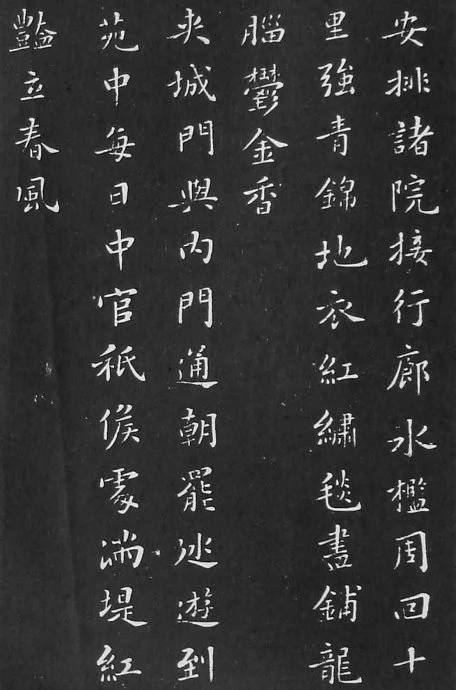 安排諸院接行廊水檻周回十
里強青錦地衣紅繡毯盡鋪龍
腦鬱金香
夾城門與内門通朝罷巡遊到
苑中每日中官祗候處滿堤紅
豔立春風